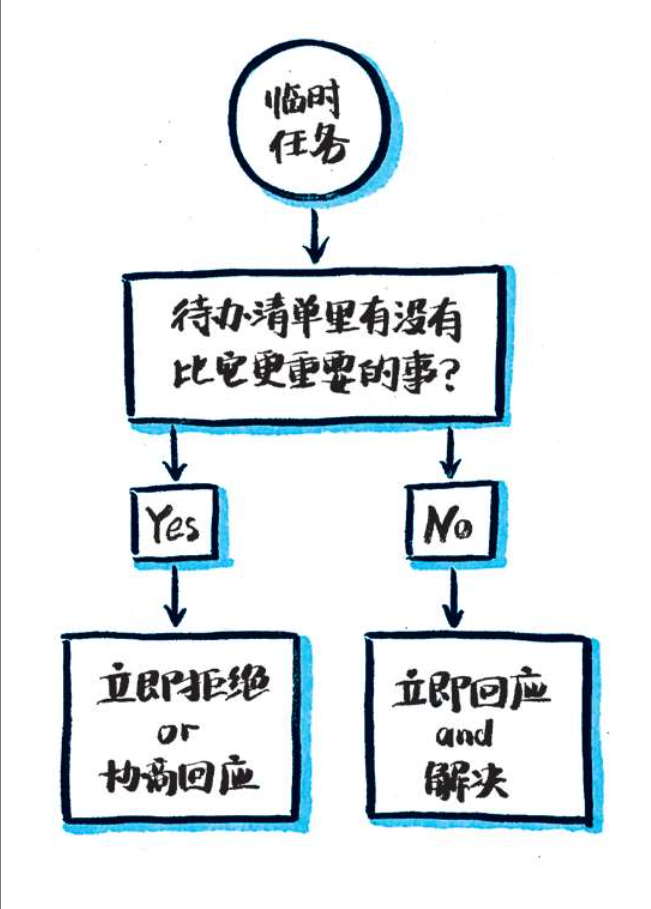 临时
任务
待办清单里有没有
比它更重要的事?
Yes
No
立即拒绝
or
协商回应
立即回应
and
解决